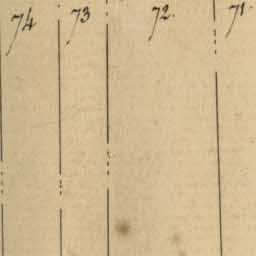 74 73 72. 71.